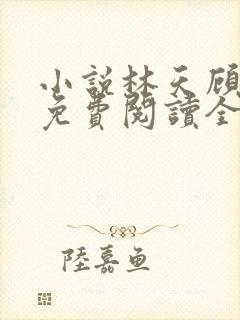 小説林天顾
免費閱讀全
陸嘉鱼